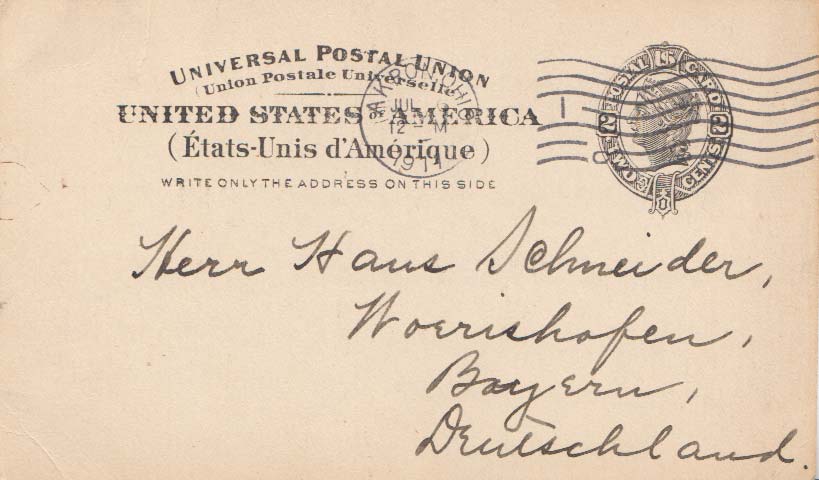 UNIVERSAL POSTAL UNION
(Union Postale Universelle)
UNITED STATES OF AMERICA
(États-Unis d'Amérique)
WRITE ONLY THE ADDRESS ON THIS SIDE
AKRON, OHIO
JUL
12 - M
1911
1
POSTAL CARD
2 2
TWO CENTS
Herr Hans Schneider,
Woerishofen,
Bayern,
Deutschland.